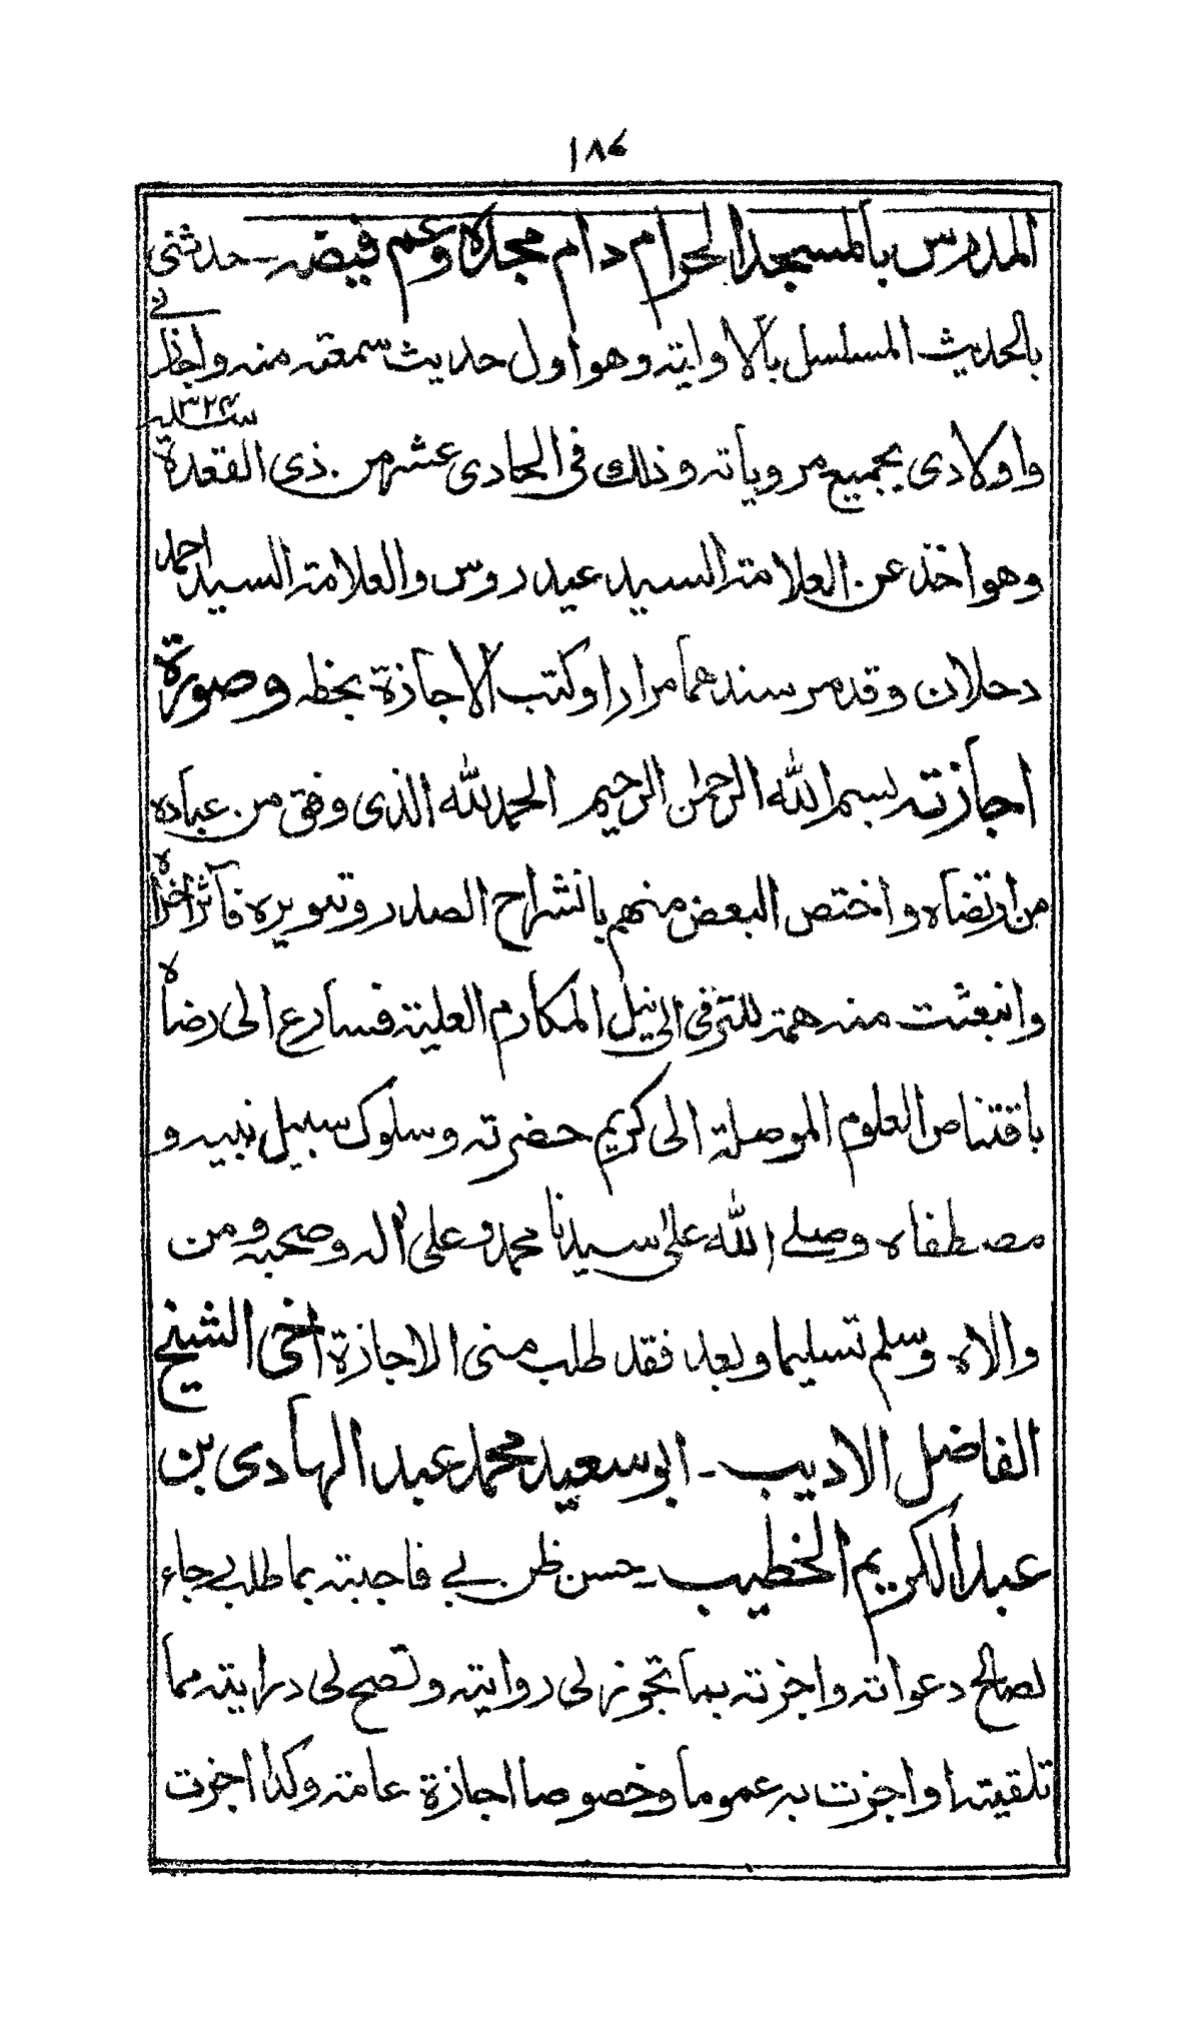 ١٨٤
المدرس بالمسجد الحرام دام مجده وعم فيضه - حدثني
بالحديث المسلسل بالاولية وهو اول حديث سمعته منه واجازني
واولادى بجميع مروياته وذلك فى الحادى عشر من ذى القعدة سنة ١٣٢٤
وهو اخذ عن العلامة السيد عيدروس والعلامة السيد احمد
دحلان وقد مر سندهما مرارا وكتب الاجازة بخطه وصورة
اجازته بسم الله الرحمن الرحيم الحمد لله الذى وفق من عباده
من ارتضاه واختص البعض منهم بانشراح الصدر وتنويره فآثر اخراه
وانبعثت منه همة للترقى الى نيل المكارم العلية فسارع الى رضاه
باقتناص العلوم الموصلة الى كريم حضرته وسلوك سبيل نبيه و
مصطفاه وصلى الله على سيدنا محمد وعلى آله وصحبه ومن
والاه وسلم تسليما وبعد فقد طلب منى الاجازة اخى الشيخ
الفاضل الاديب - ابو سعيد محمد عبد الهادى بن
عبد الكريم الخطيب - حسن ظن بى فاجبته بما طلب رجاء
لصالح دعواته واجزته بما تجوز لى روايته وتصح لى درايته مما
تلقيته او اجزت به عموما وخصوصا اجازة عامة وكذا اجزت